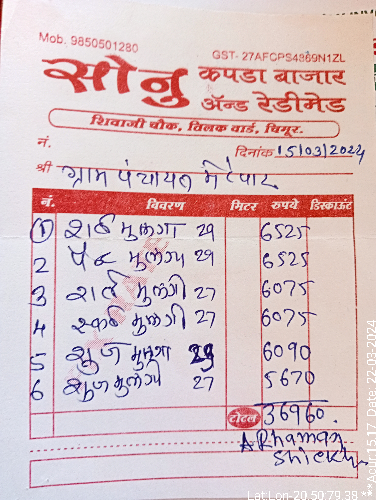 Mob. 9850501280
GST- 27AFCPS4869N1ZL
सोनु कपडा बाजार
ॲन्ड रेडीमेड
शिवाजी चौक, तिलक वार्ड, चिमूर.
नं. दिनांक 15/03/2024
श्री ग्राम पंचायत मेटेपार
नं. विवरण मिटर रुपये डिस्काऊंट
1 शर्ट मुलगा 29 6525
2 पॅंट मुलगा 29 6525
3 शर्ट मुलगी 27 6075
4 स्कर्ट मुलगी 27 6075
5 शुज मुलगा 29 6090
6 शुज मुलगी 27 5670
टोटल 36960.
A Rhaman
Shiekh
Lat Lon-20.50,79.38
***Apur:1517 Date, 22-03-2024